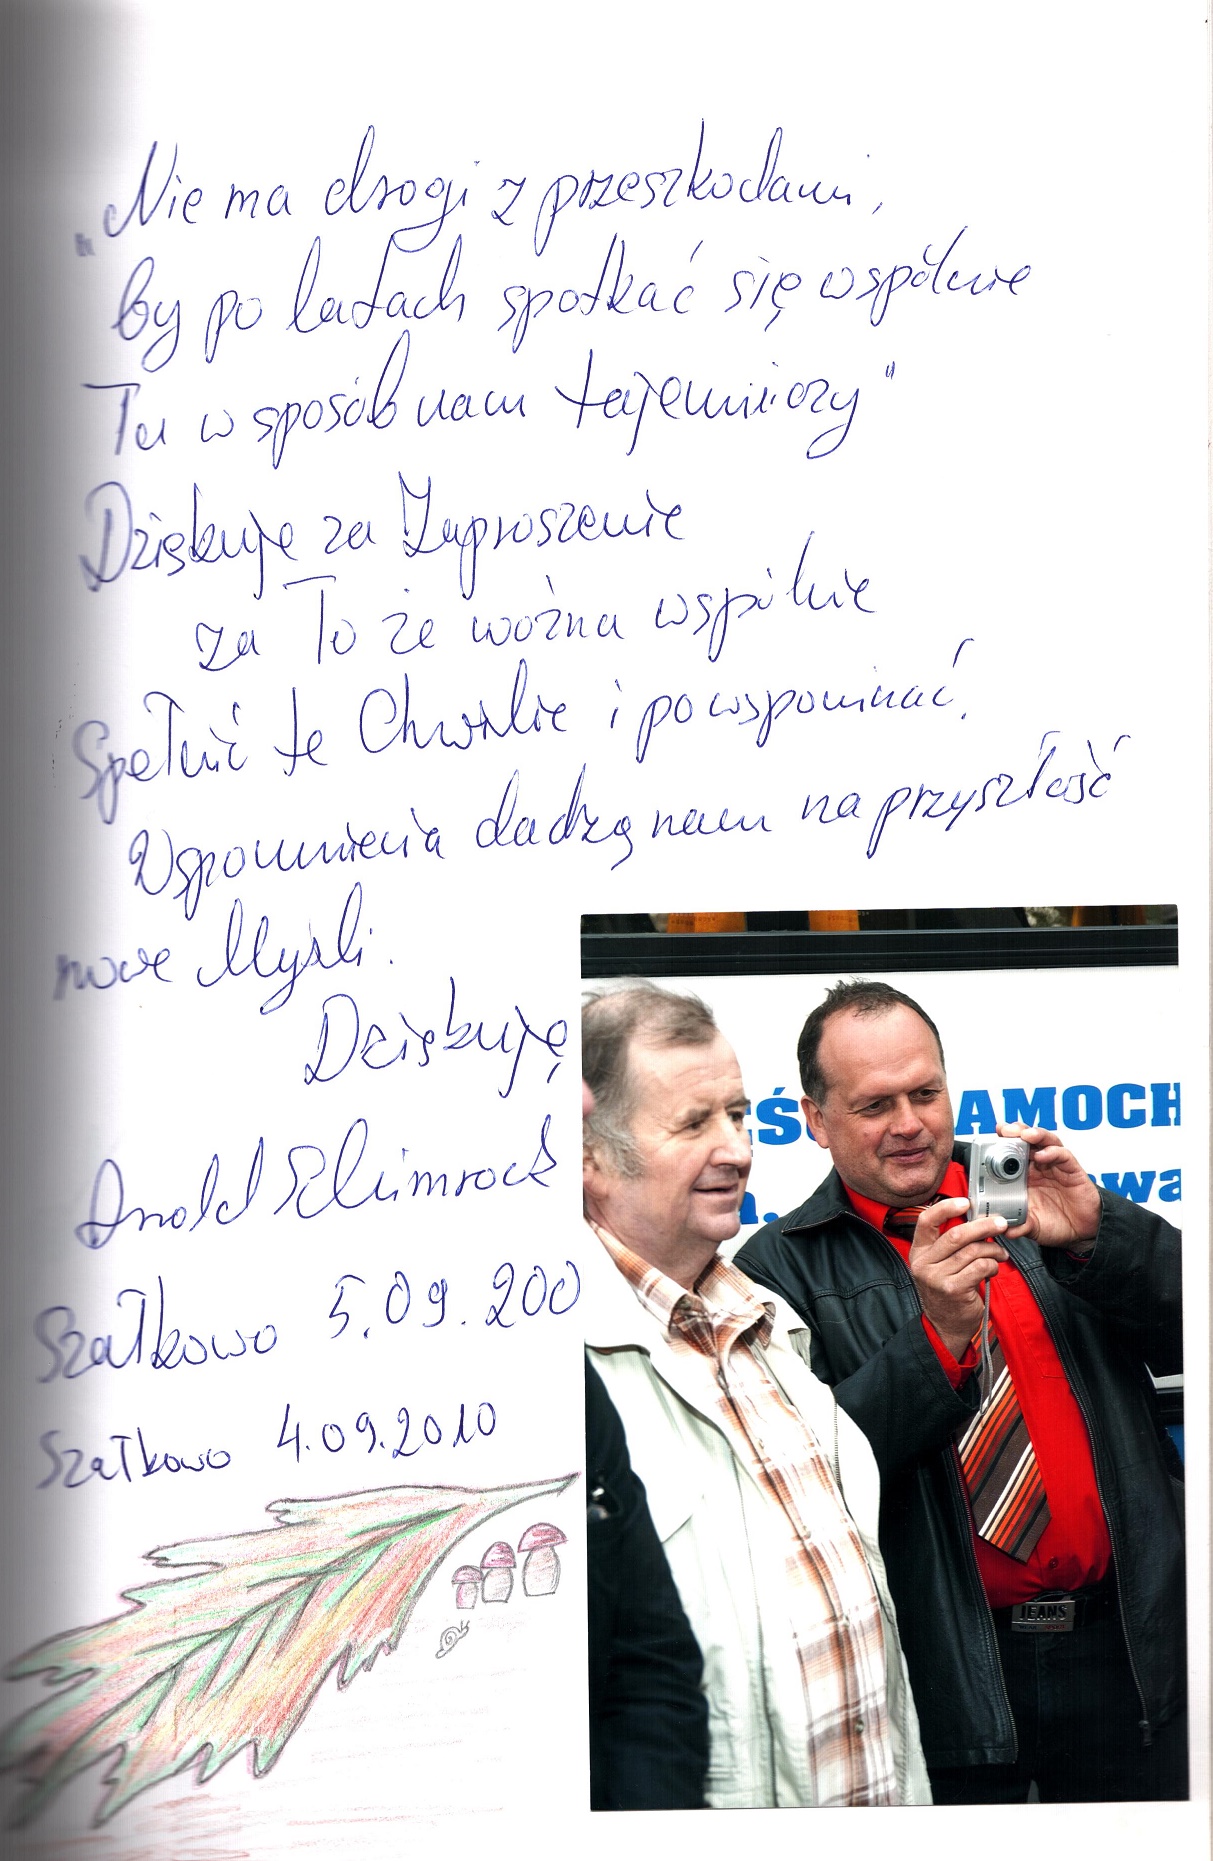 „Nie ma drogi z przeszkodami,
by po latach spotkać się wspólnie
Tu w sposób nam tajemniczy"
Dziękuję za Zaproszenie
za To że można wspólnie
Spełnić te Chwile i powspominać.
Wspomnienia dadzą nam na przyszłość
nowe Myśli.
Dziękuję
Arnold
Szałkowo 5.09.200
Szałkowo 4.09.2010
EŚ AMOCH
a. owa
JEANS